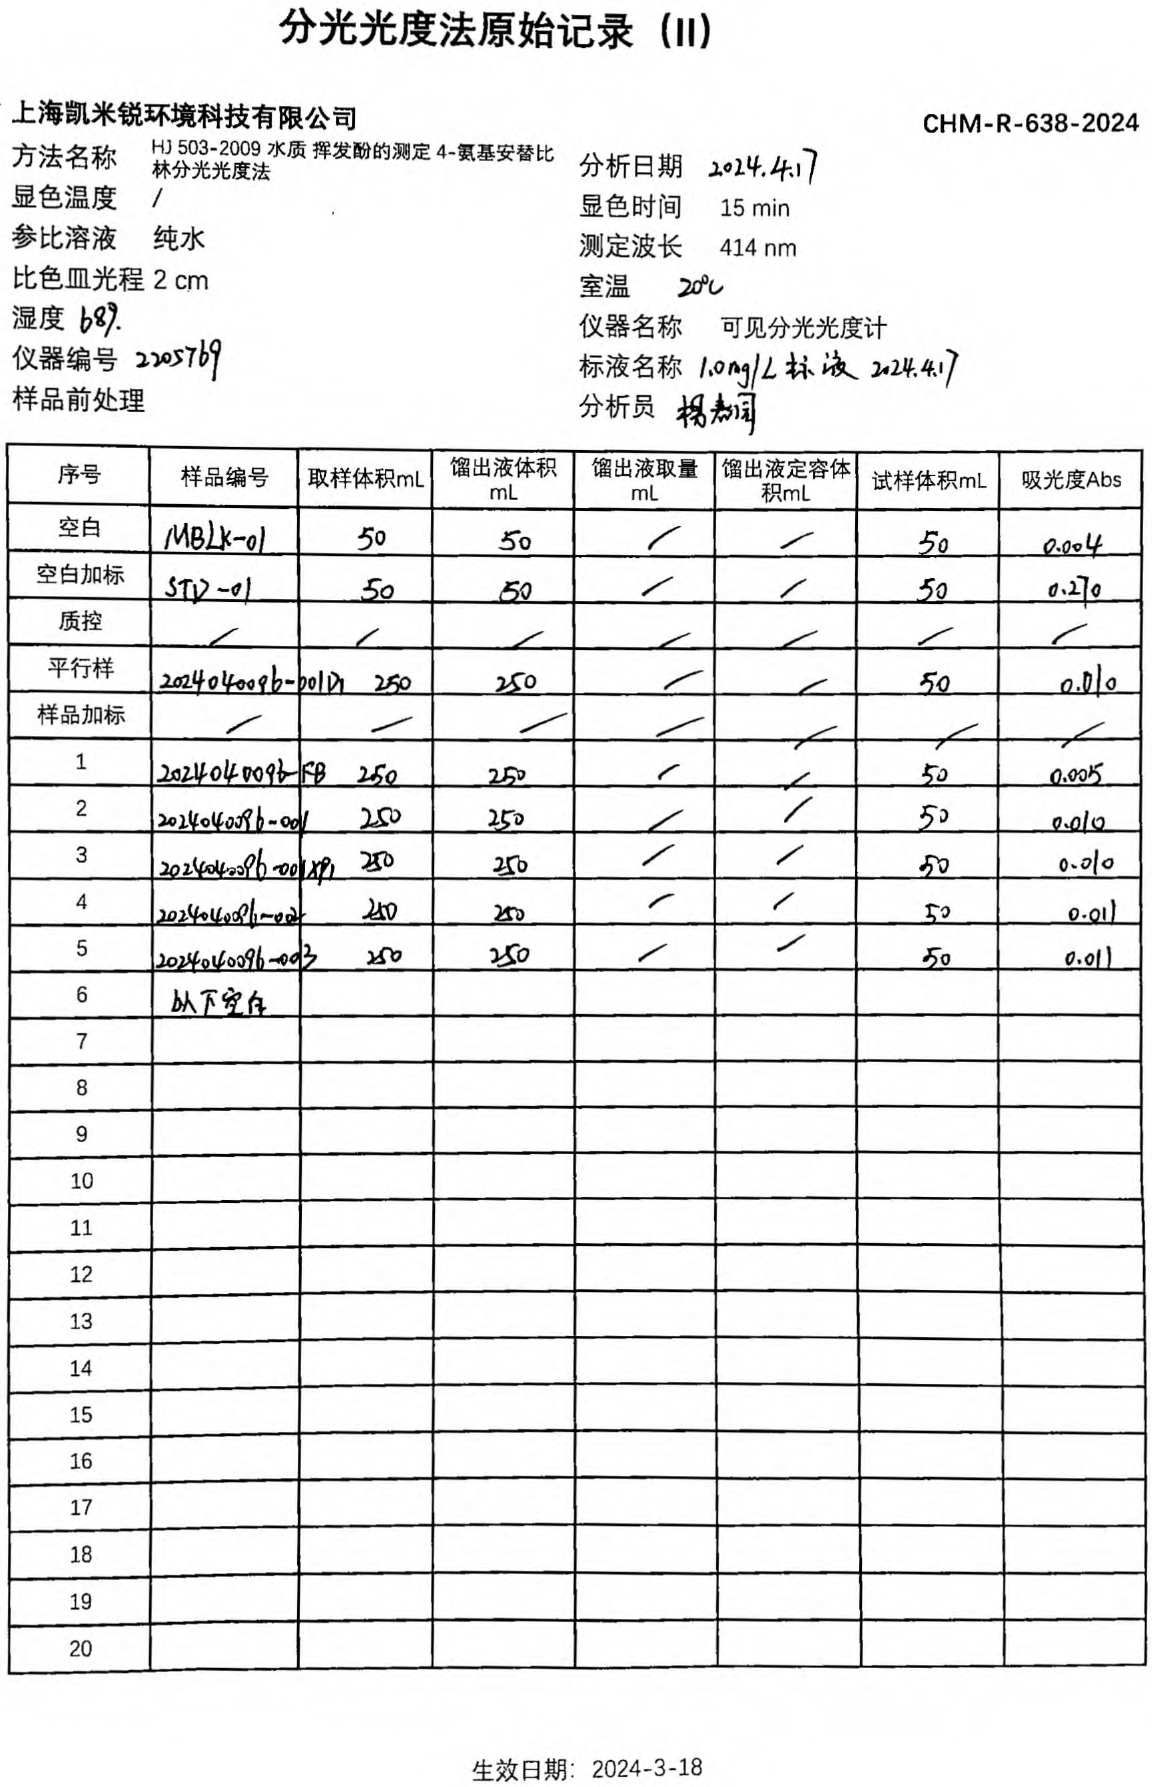 分光光度法原始记录（II）
上海凯米锐环境科技有限公司
CHM-R-638-2024
方法名称 HJ 503-2009 水质 挥发酚的测定 4-氨基安替比林分光光度法
分析日期 2024.4.17
显色温度 /
显色时间 15 min
参比溶液 纯水
测定波长 414 nm
比色皿光程 2 cm
室温 20℃
湿度 68%
仪器名称 可见分光光度计
仪器编号 2205769
标液名称 1.0mg/L 标液 2024.4.17
样品前处理
分析员
序号 样品编号 取样体积mL 馏出液体积mL 馏出液取量mL 馏出液定容体积mL 试样体积mL 吸光度Abs
空白 MBLK-01 50 50 / / 50 0.004
空白加标 STD-01 50 50 / / 50 0.270
质控 / / / / / / /
平行样 2024040096-001D1 250 250 / / 50 0.010
样品加标 / / / / / / /
1 2024040096-FB 250 250 / / 50 0.005
2 2024040096-001 250 250 / / 50 0.010
3 2024040096-001XP1 250 250 / / 50 0.010
4 2024040096-002 250 250 / / 50 0.011
5 2024040096-003 250 250 / / 50 0.011
6 以下空白
7
8
9
10
11
12
13
14
15
16
17
18
19
20
生效日期：2024-3-18